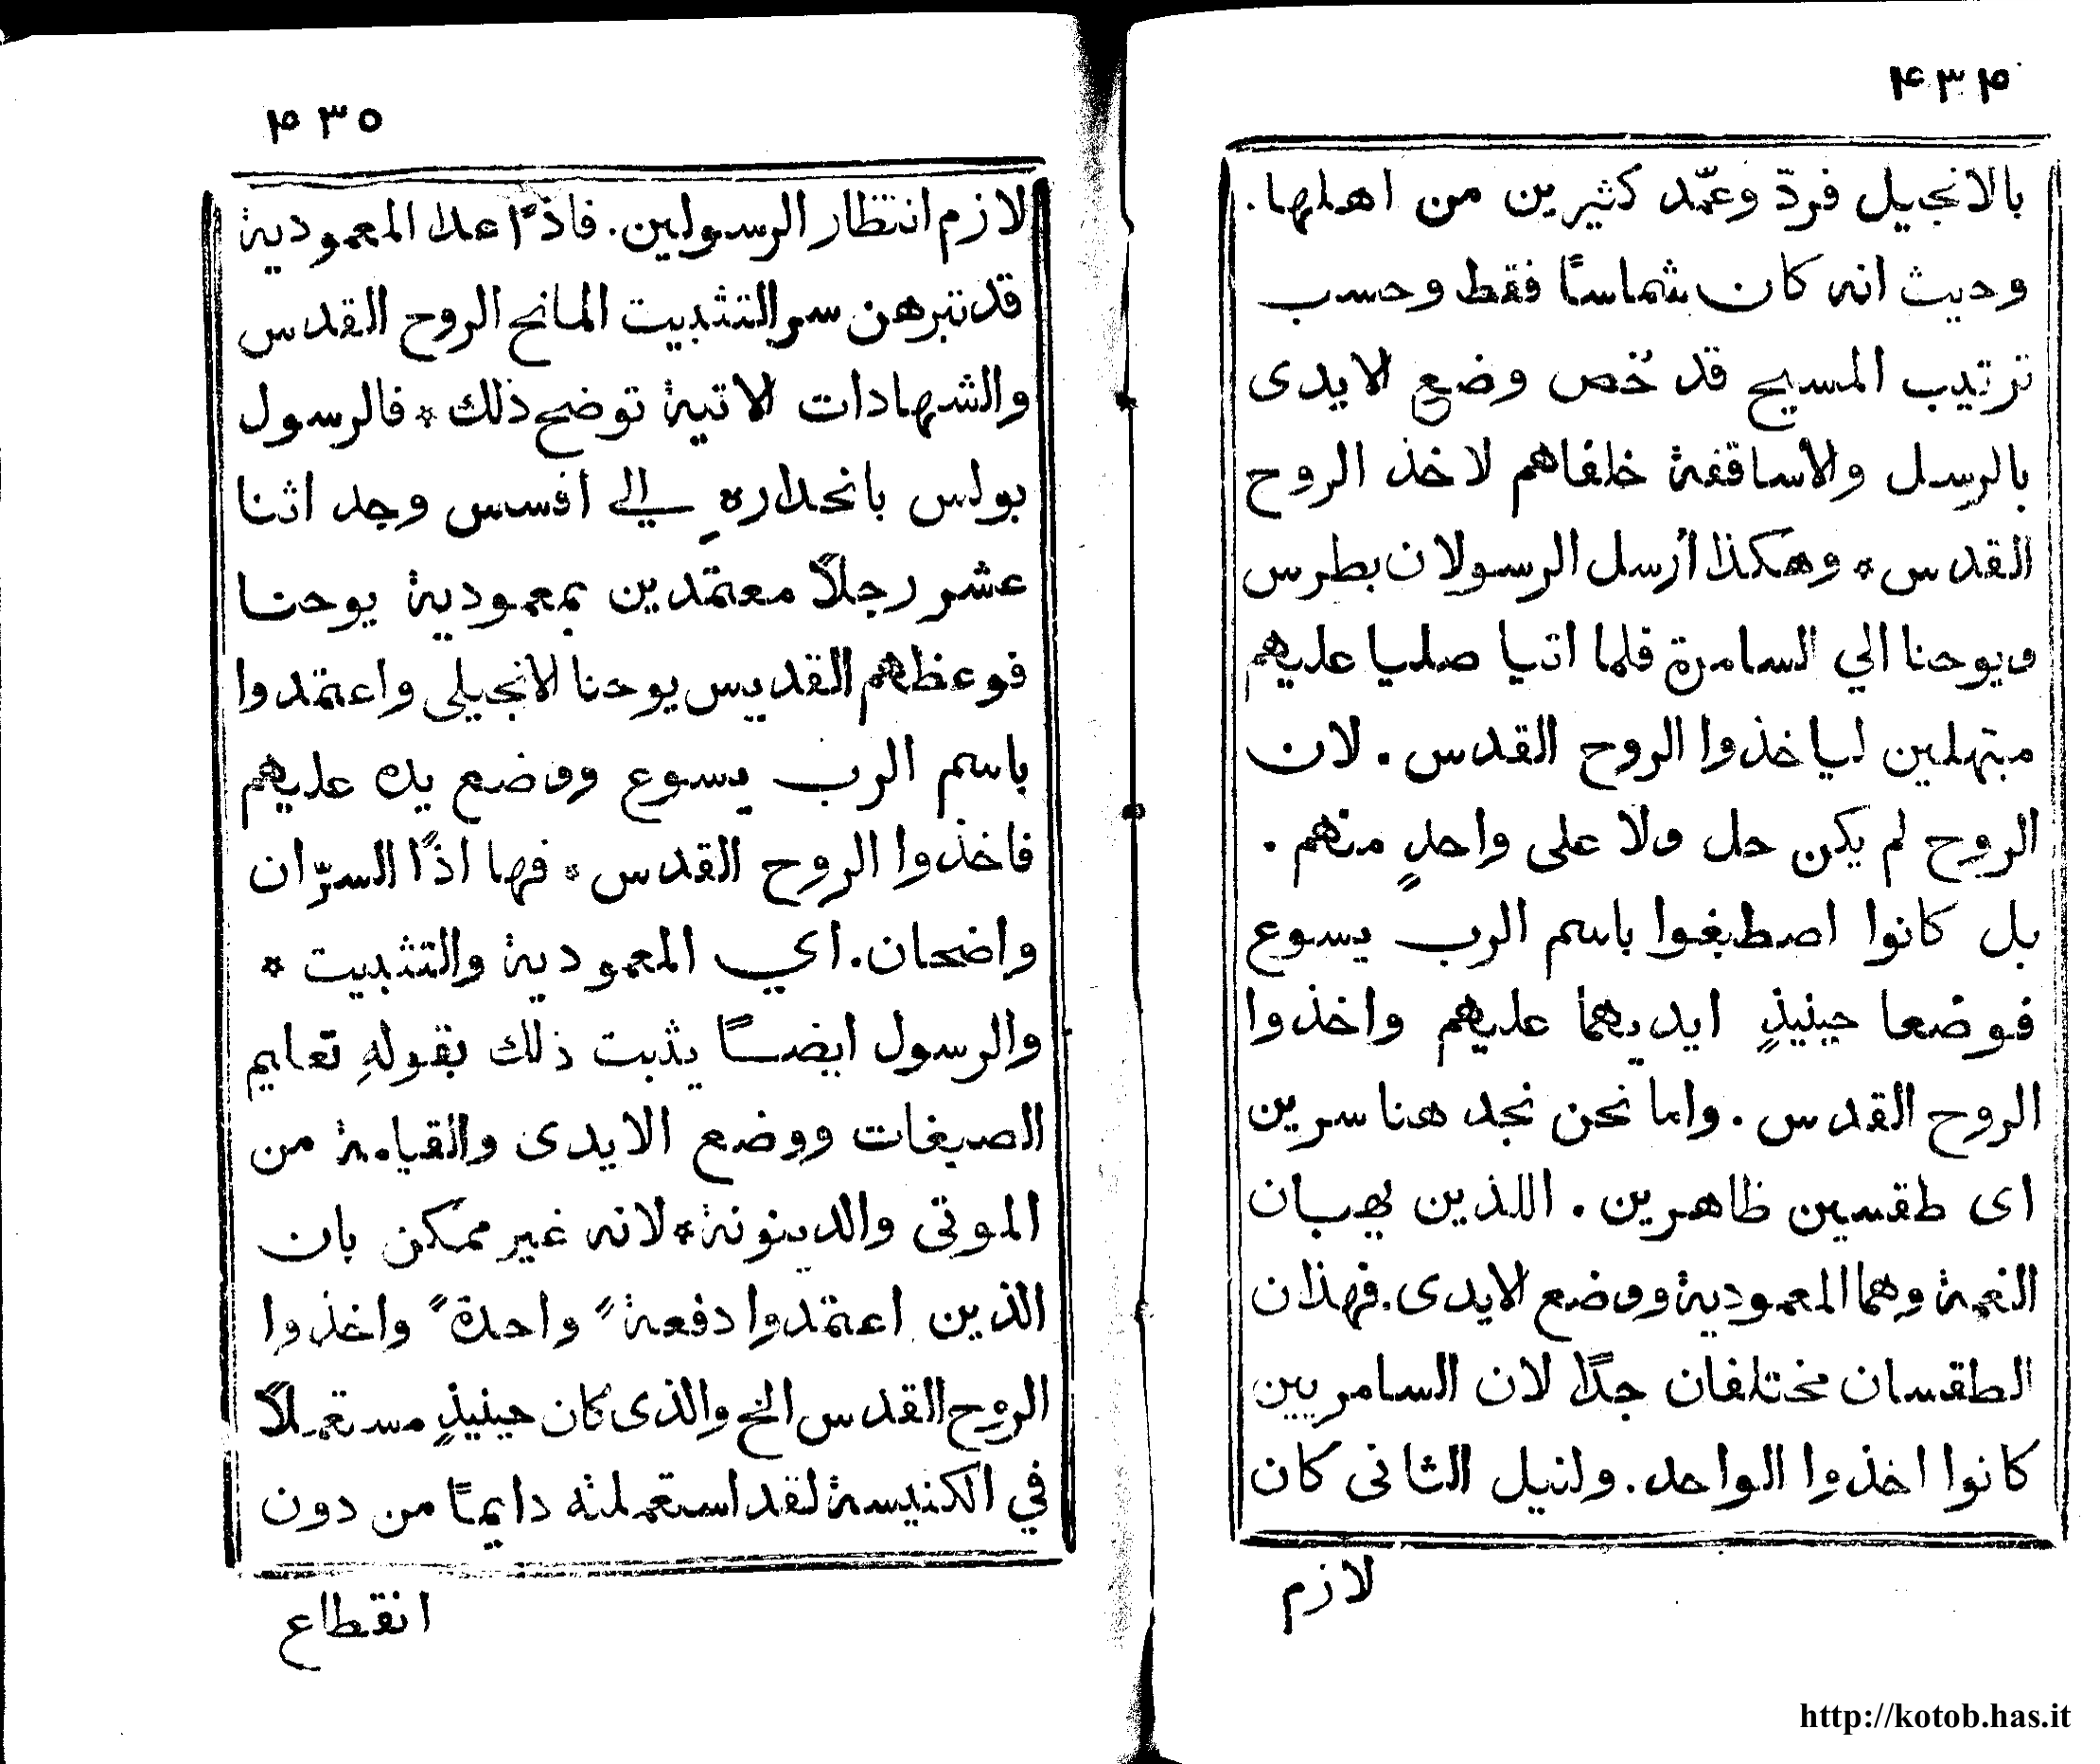 ٤٣٤
بالانجيل فردّ وعمّد كثيرين من اهلها.
وحيث انه كان شماسًا فقط وحسب
ترتيب المسيح قد خُص وضع الايدى
بالرسل والاساقفة خلفاهم لاخذ الروح
القدس * وهكذا أرسل الرسولان بطرس
ويوحنا الي السامرة فلما اتيا صليا عليهم
مبتهلين لياخذوا الروح القدس . لان
الروح لم يكن حل ولا على واحدٍ منهم .
بل كانوا اصطبغوا باسم الرب يسوع
فوضعا حينيذٍ ايديهما عليهم واخذوا
الروح القدس . واما نحن نجد هنا سرين
اى طقسين ظاهرين . اللذين يهبان
النعمة وهما المعمودية ووضع الايدى . فهذان
الطقسان مختلفان جدًا لان السامريين
كانوا اخذوا الواحد . ولنيل الثانى كان
لازم
٤٣٥
لازم انتظار الرسولين . فاذًا عدا المعمودية
قد تبرهن سر التثبيت المانح الروح القدس
والشهادات الاتية توضح ذلك * فالرسول
بولس بانحداره الي افسس وجد اثنا
عشر رجلاً معتمدين بمعمودية يوحنا
فوعظهم القديس يوحنا الانجيلى واعتمدوا
باسم الرب يسوع ووضع يده عليهم
فاخذوا الروح القدس * فها اذًا السرّان
واضحان . اي المعمودية والتثبيت *
والرسول ايضًا يثبت ذلك بقولهِ تعليم
الصبغات ووضع الايدى والقيامة من
الموتى والدينونة * لانه غير ممكن بان
الذين اعتمدوا دفعةً واحدةً واخذوا
الروح القدس الخ والذى كان حينيذٍ مستعملاً
في الكنيسة لقد استعملته دايمًا من دون
انقطاع
http://kotob.has.it